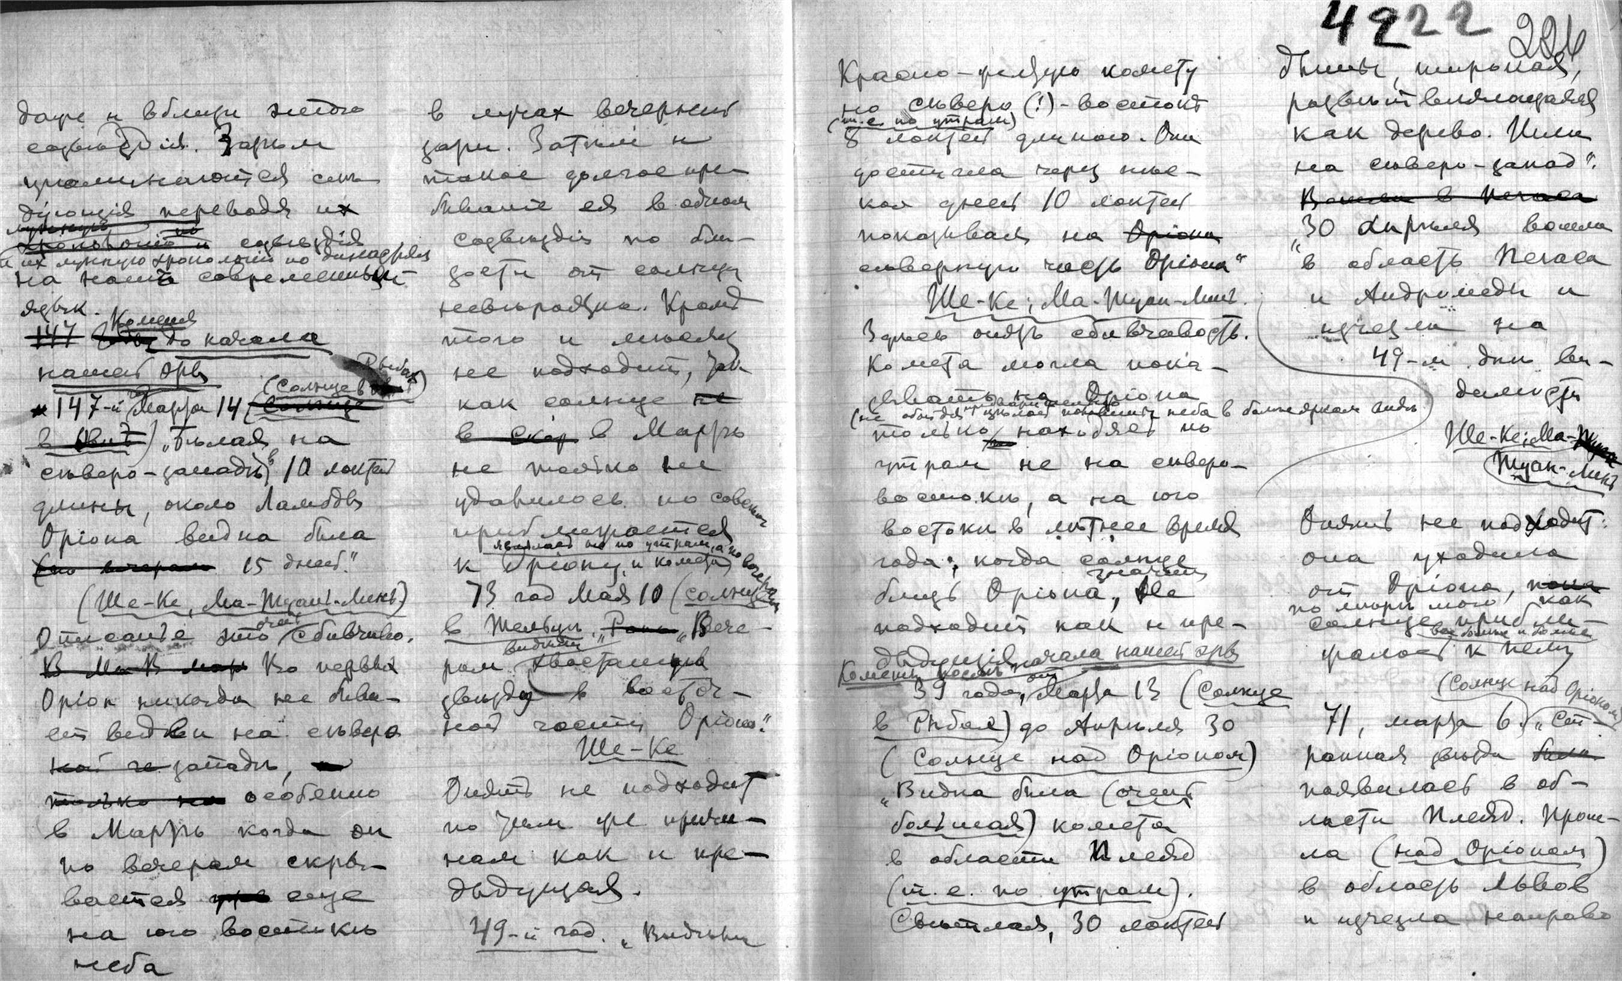 4222
226
даже и вблизи этого
созвѣздія. Затѣм
упоминаются слѣ-
дующія переводя их
созвѣздія
и их лунную хронологію по
на нашъ современный
язык.
147 Комета
до начала
нашей эры
(Солнце в Рыбах)
147-й Марта 14
в „Бѣлая на
сѣверо-западѣ, 10 локтей
длины, около Ламбды
Оріона видна была
15 дней."
(Ше-Ке, Ма-Туан-Линь)
Описаніе это очень сбивчиво.
Во первых
Оріон никогда не быва-
ет виден на сѣверо
западѣ,
особенно
в Мартѣ когда он
по вечерам скры-
вается еще
на юго востокѣ
неба
в лучах вечерней
зари. Затѣм и
такое долгое пре-
бываніе ея в одном
созвѣздіи по бли-
зости от солнца
невѣроятно. Кромѣ
того и мѣсяц
не подходит, так-
как солнце не
в Мартѣ
не только не
удавилось но
приближается
являлась бы по утрам, а не вечерам
к Оріону, и комета
73 год Мая 10 (солнце
в Тельцѣ „Вече-
рам видима хвостатая
звѣзда в восточ-
ной части Оріона."
Ше-Ке
Опять не подходит
по тѣм же причи-
нам как и пре-
дыдущая.
49-й год. „Видѣли
Красно-желтую комету
на сѣверо (!)-востокѣ
(т.е. по утрам)
8 локтей длиною. Она
достигла через нѣс-
колько дней 10 локтей
показывая на Оріона
сѣверную часть Оріона"
Ше-Ке; Ма-Туан-Линь.
Здѣсь опять сбивчивость.
Комета могла пока-
зывать на Оріона
только находясь по
утрам не на сѣверо-
востокѣ, а на юго
востокѣ в лѣтнее время
года, когда солнце
близь Оріона, значит не
подходит как и пре-
дыдущія
Кометы послѣ начала нашей эры
39 года, от Марта 13 (Солнце
в Рыбах) до Апрѣля 30
(Солнце над Оріоном)
„Видна была (очень
большая) комета
в области Плеяд
(т.е. по утрам).
Свѣтлая, 30 локтей
длины, широкая,
развѣтвляющаяся
как дерево. Шла
на сѣверо-запад".
Вошла в Пегаса
30 Апрѣля вошла
„в область Пегаса
и Андромеды и
изчезла" на
49-й день ви-
димости
Ше-Ке; Ма-
Туан-Линь
Опять не подходит:
она уходила
от Оріона,
по мѣрѣ того как
солнце приближа-
лось к нему
все больше и больше
(Солнце над Оріоном)
71, марта 6. „Ст-
ранная звѣзда
появилась в об-
ласти Плеяд. Прош-
ла (над Оріоном)
в область Львов
и изчезла направо